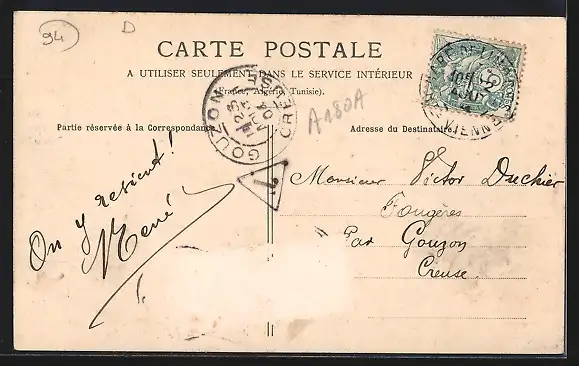 94
D
CARTE POSTALE
A UTILISER SEULEMENT DANS LE SERVICE INTÉRIEUR
(France, Algérie, Tunisie).
A180A
GOUZON
CREUSE
Partie réservée à la Correspondance
Adresse du Destinataire
T
On y revient!
René
Monsieur Victor Duchier
Fougères
Par Gouzon
Creuse.